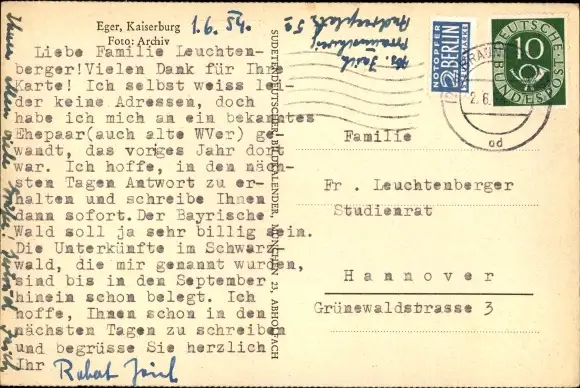 Eger, Kaiserburg
Foto: Archiv
1.6.54.
Liebe Familie Leuchten-
berger! Vielen Dank für Ihre
Karte! Ich selbst weiss lei-
der keine Adressen, doch
habe ich mich an ein bekanntes
Ehepaar(auch alte WVer) ge-
wandt, das voriges Jahr dort
war. Ich hoffe, in den näch-
sten Tagen Antwort zu er-
halten und schreibe Ihnen
dann sofort.Der Bayrische
Wald soll ja sehr billig sein.
Die Unterkünfte im Schwarz-
wald, die mir genannt wurden,
sind bis in den September
hinein schon belegt. Ich
hoffe, Ihnen schon in den
nächsten Tagen zu schreiben
und begrüsse Sie herzlich
Ihr
SUDETENDEUTSCHER BILDKALENDER, MÜNCHEN 23, ABHOLFACH
NOTOPFER
2 BERLIN
STEUERMARKE
DEUTSCHE
BUNDESPOST
10
2.6.
Familie
Fr . Leuchtenberger
Studienrat
Hannover
Grünewaldstrasse 3